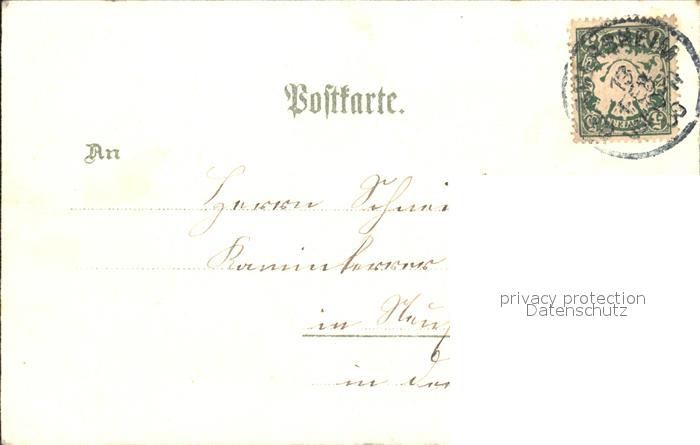 Postkarte.
An
Herrn Schnei
Kaminkerrer
in Neu
in de
privacy protection
Datenschutz